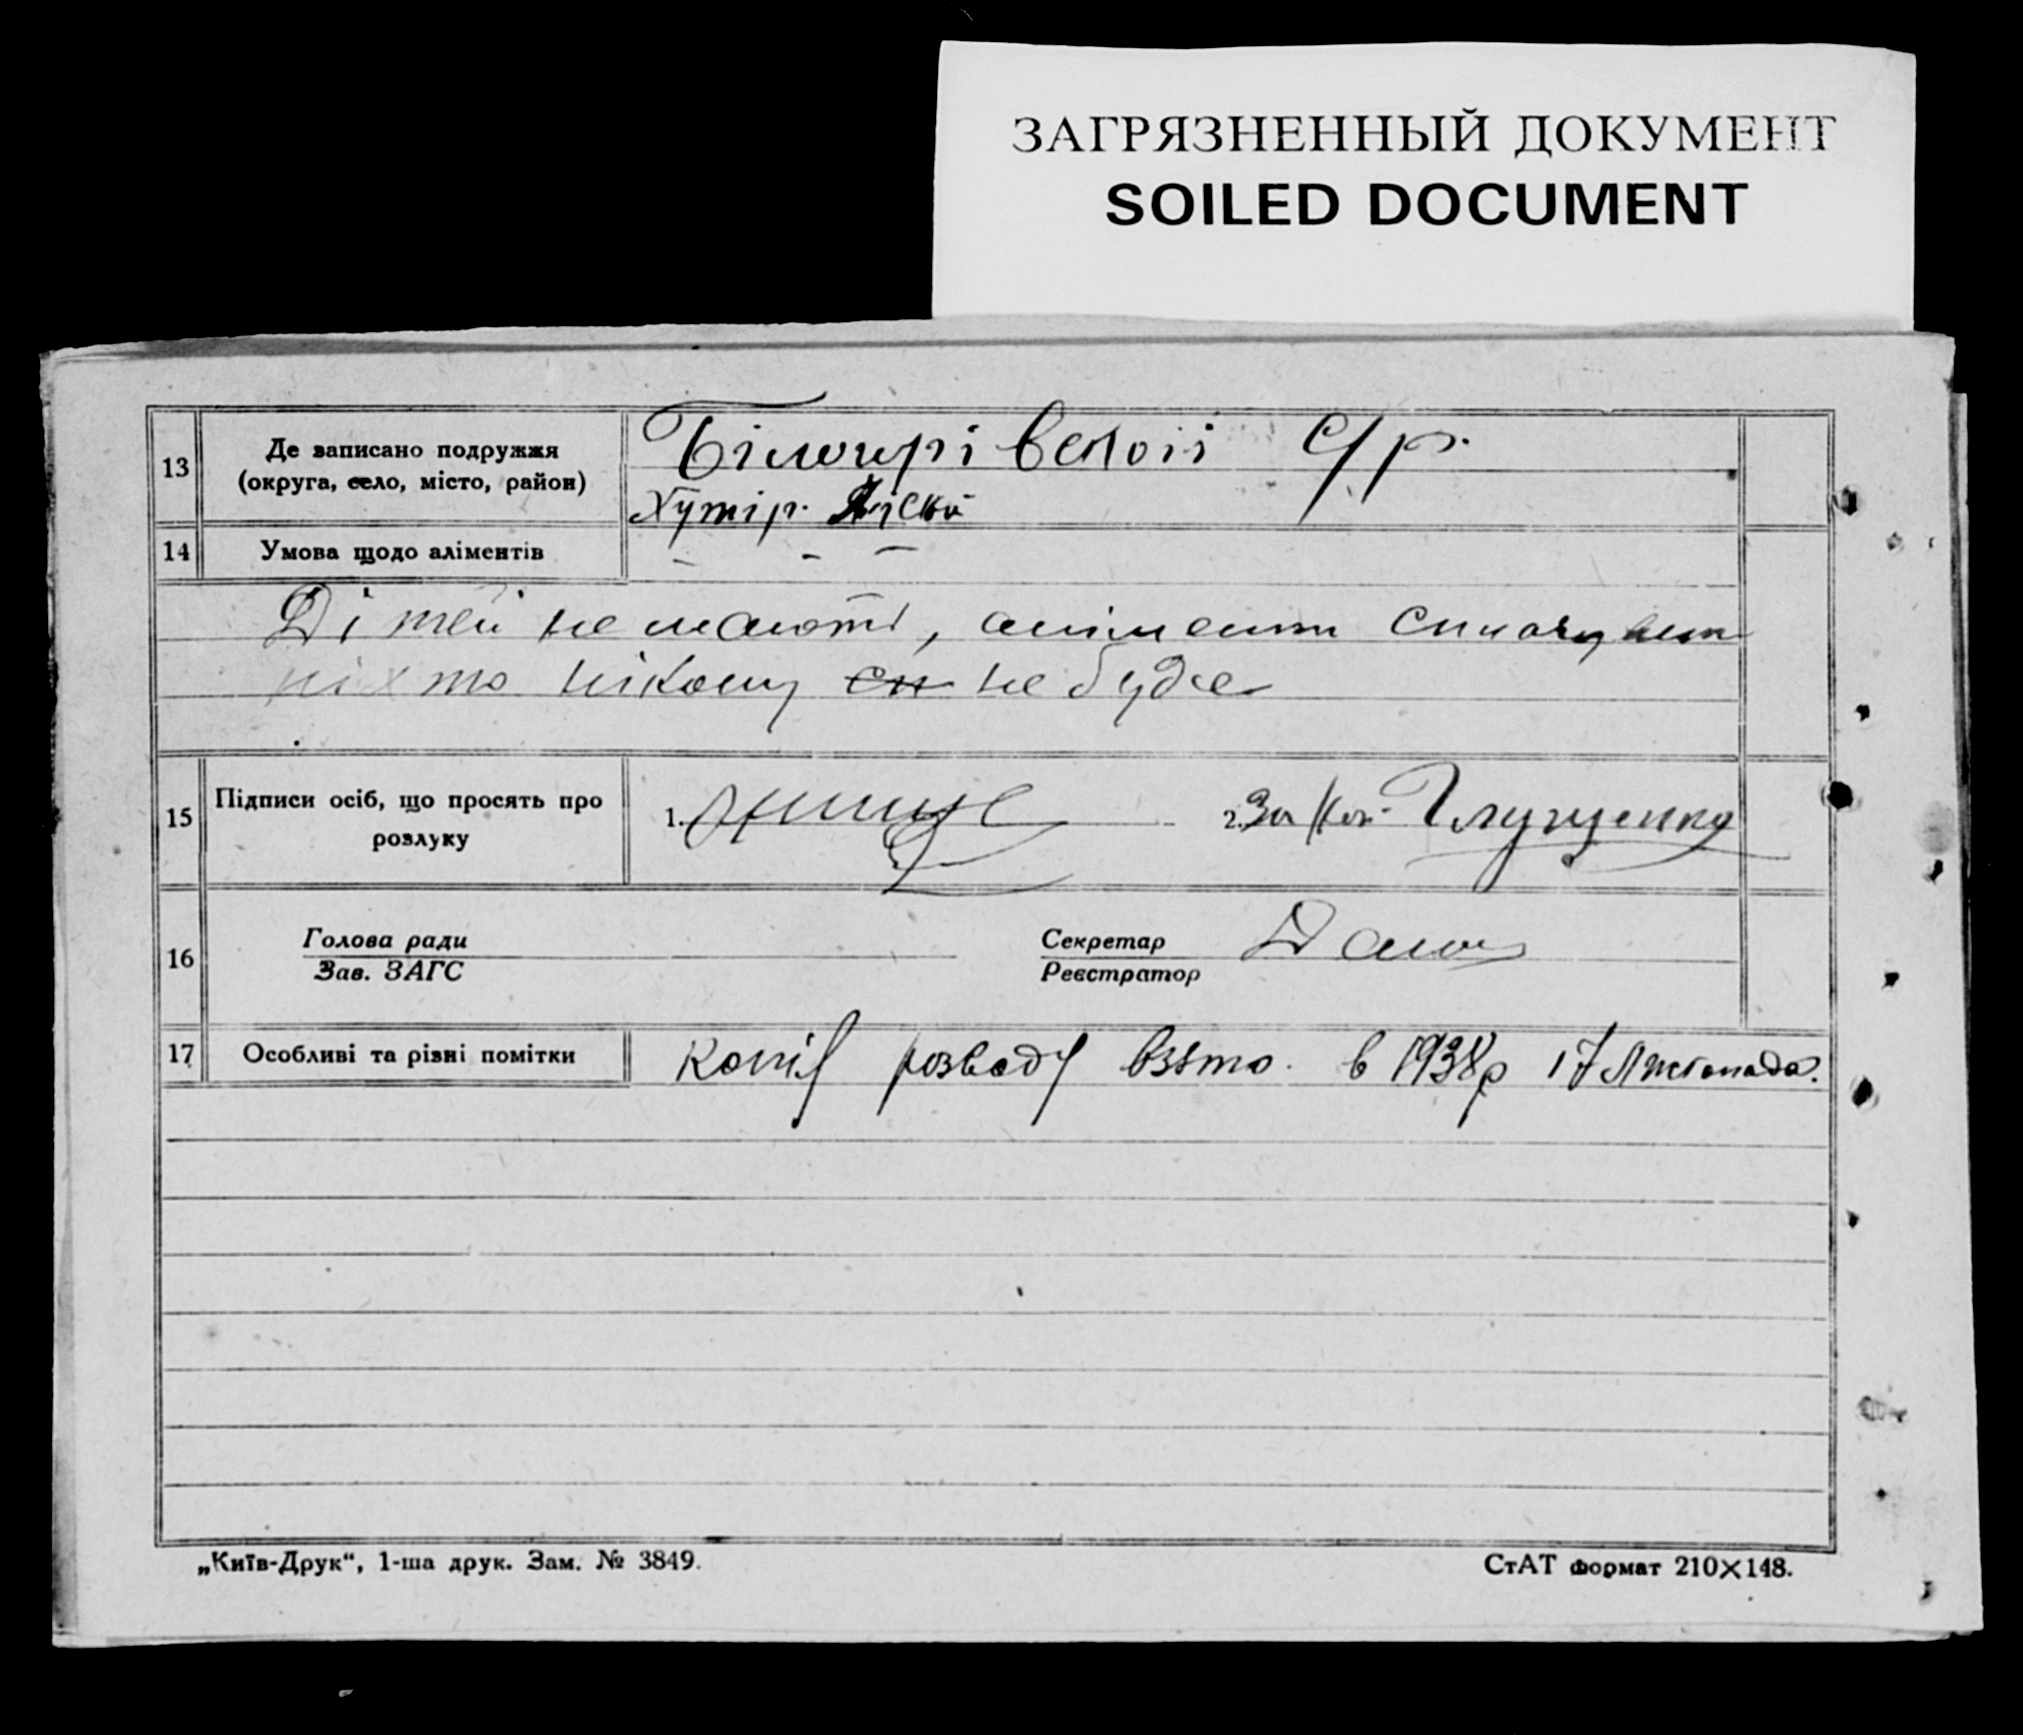 ЗАГРЯЗНЕННЫЙ ДОКУМЕНТ
SOILED DOCUMENT
13 Де записано подружжя
(округа, село, місто, район)
С/р.
Хутір.
14 Умова щодо аліментів - - -
Дітей не мають, аліменти сплачувати
ніхто нікому сп не буде
15 Підписи осіб, що просять про
розлуку
1. 2. За Глущенко
16 Голова ради
Зав. ЗАГС
Секретар
Реєстратор
17 Особливі та різні помітки Копію розводу взято. в 1938р 17 Листопада.
„Київ-Друк“, 1-ша друк. Зам. № 3849.
СтАТ формат 210×148.